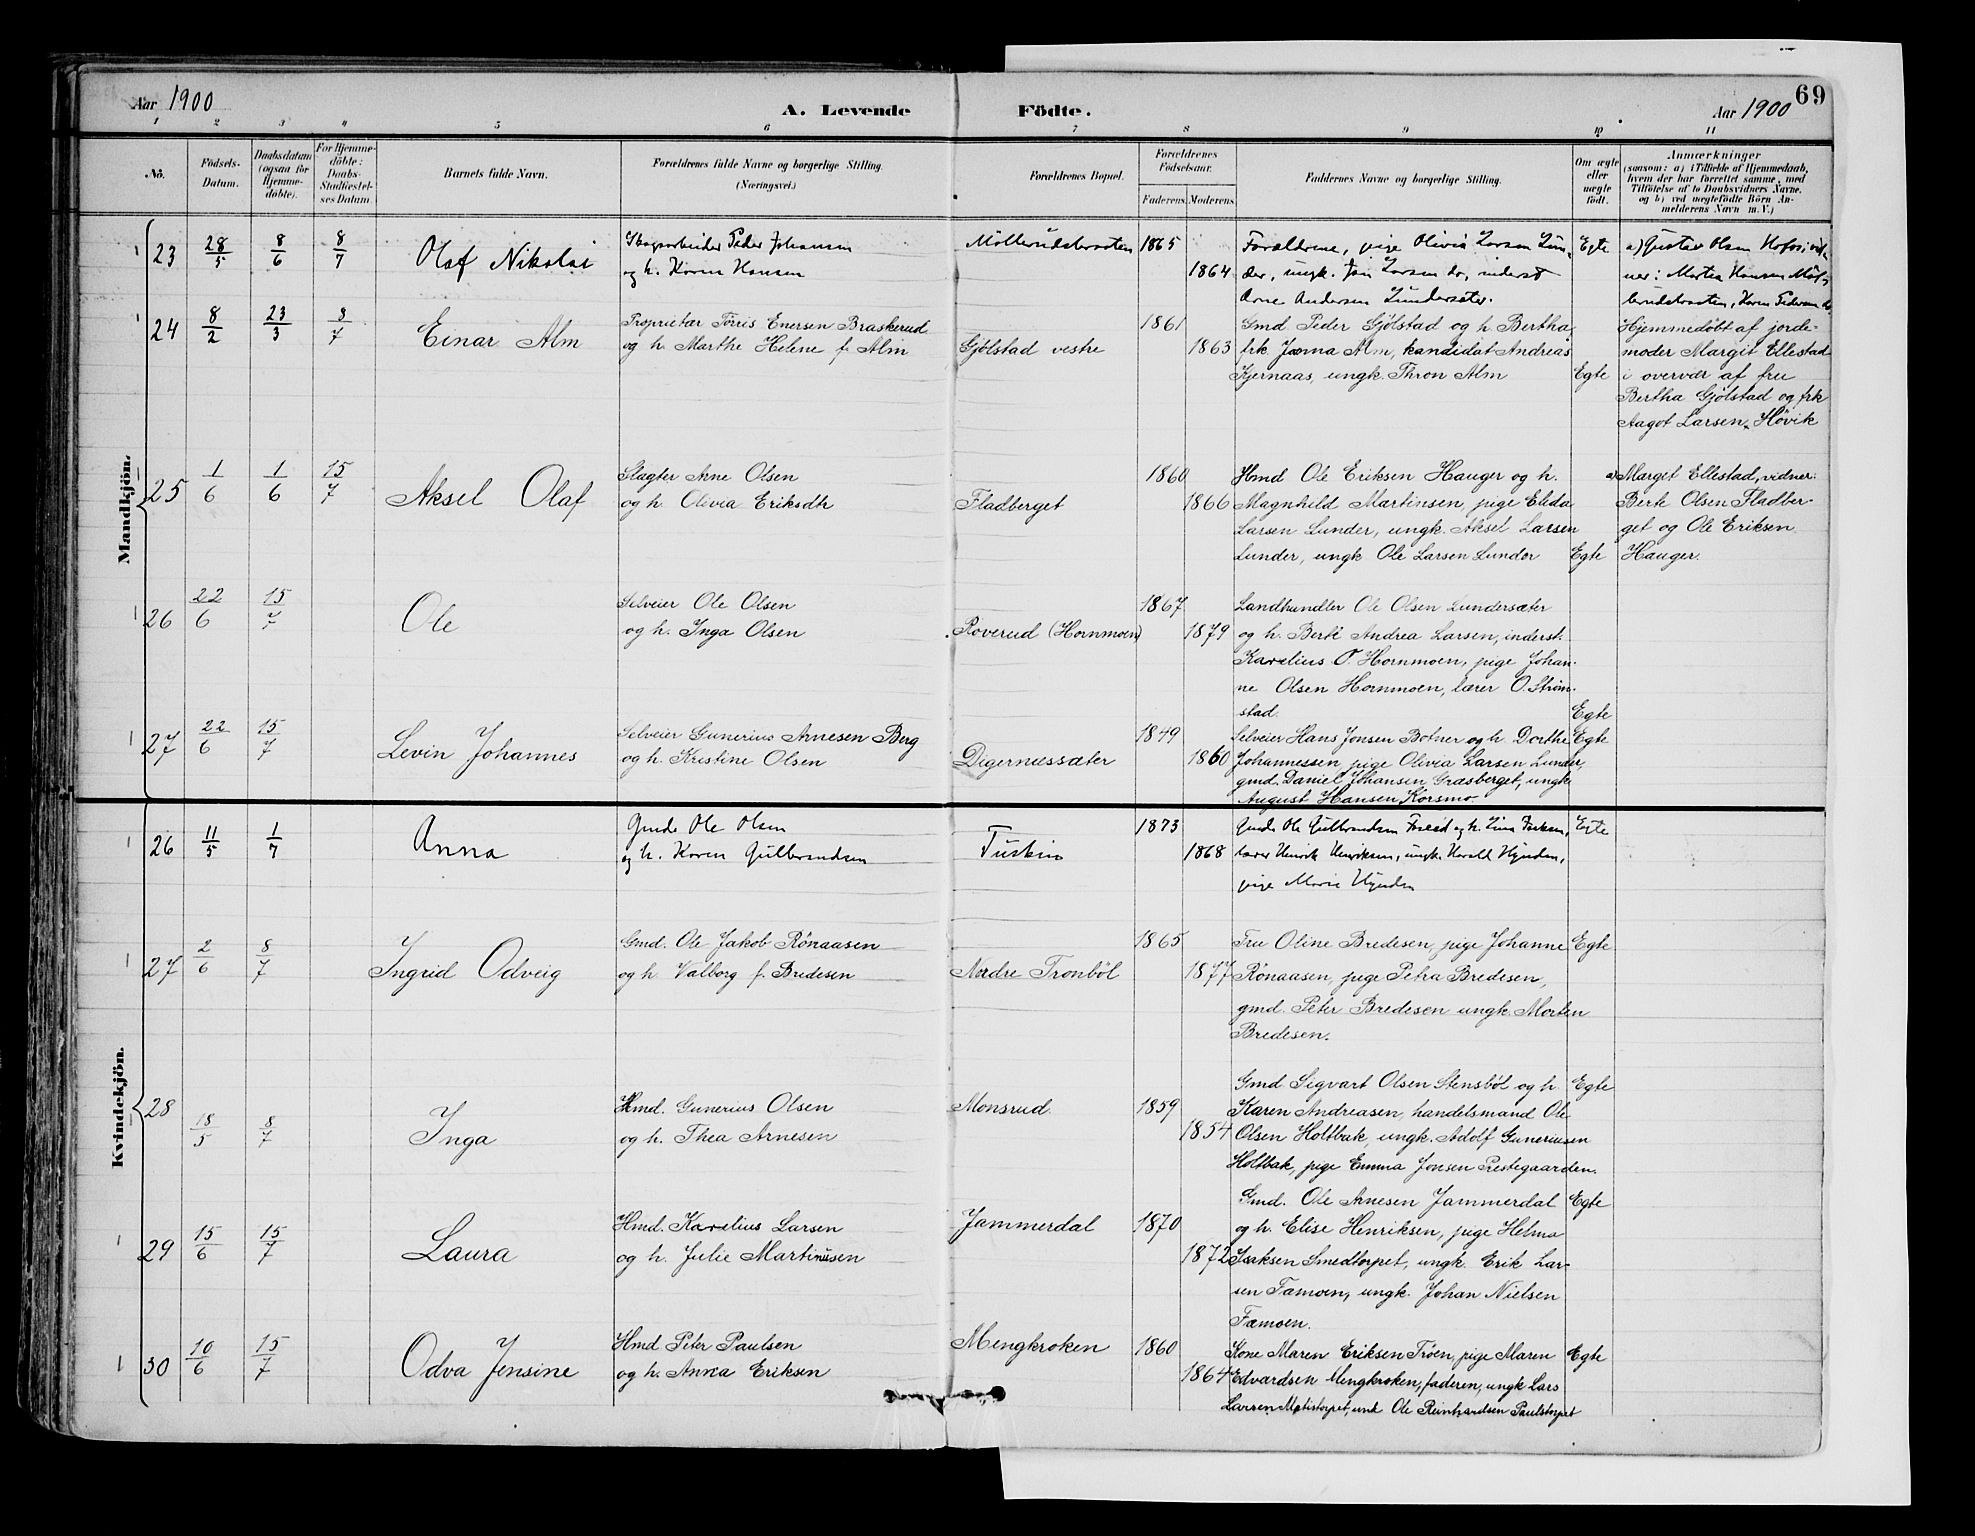 Aar 1900
A. Levende Födte.
Aar 1900
69
1 2 3 4 5 6 7 8 9 10 11
No.
Födsels-Datum.
Daabsdatum (ogsaa for Hjemmedöbte).
For Hjemmedöbte: Daabs-Stadfæstelses Datum
Barnets fulde Navn.
Forældrenes fulde Navne og borgerlige Stilling. (Næringsvei.)
Forældrenes Bopæl.
Forældrenes Födselsaar.
Faderens. Moderens.
Faddernes Navne og borgerlige Stilling.
Om ægte eller uægte födt.
Anmærkninger
(saasom: a) i Tilfælde af Hjemmedaab,
hvem der har forrettet samme, med
Tilföielse af to Daabsvidners Navne,
og b) ved uægtefödte Börn An-
melderens Navn m. V.)
Mandkjön.
23 28/5 8/6 8/7 Olaf Nikolai
Skogsarbeider Peder Johansen
og h. Karen Hansen
Möllerudsbraaten 1865 1864
Forældrene, pige Olivia Larsen Lun-
der, ungk. Jon Larsen do, inderst
Arne Andersen Lundersæter.
Egte
a) Gustav Olsen Hofos; vid-
ner: Martea Hansen Möl-
lerudsbraaten, Karen Pedersen do
24 8/2 23/3 8/7 Einar Alm
Proprietær Törris Enersen Braskerud
og h. Marthe Helene f. Alm
Gjölstad vestre 1861 1863
Gmd Peder Gjölstad og h. Bertha,
frk Janna Alm, kandidat Andreas
Kjernaas, ungk. Thron Alm
Egte
Hjemmedöbt af jorde-
moder Margit Ellestad
i overvær af fru
Bertha Gjölstad og frk
Aagot Larsen, Hövik
25 1/6 1/6 15/7 Aksel Olaf
Slagter Arne Olsen
og h. Olivia Eriksdtr
Fladberget 1860 1866
Hmd Ole Eriksen Hauger og h.
Magnhild Martinsen, pige Elida
Larsen Lunder, ungk. Aksel Larsen
Lunder, ungk Ole Larsen Lunder
Egte
a) Marget Ellestad, vidner:
Berte Olsen Fladber-
get og Ole Eriksen
Hauger.
26 22/6 15/7 Ole
Selveier Ole Olsen
og h. Inga Olsen
Roverud (Hornmoen) 1867 1879
Landhandler Ole Olsen Lundersæter
og h. Berte Andrea Larsen, inderst
Karelius O. Hornmoen, pige Johan-
ne Olsen Hornmoen, lærer O. Ström-
stad.
Egte
27 22/6 15/7 Levin Johannes
Selveier Gunerius Arnesen Berg
og h. Kristine Olsen
Digernæssæter 1849 1860
Selveier Hans Jonsen Botner og h. Dorthe
Johannessen, pige Olivia Larsen Lunder,
gmd. Daniel Johansen Græsberget, ungk
August Hansen Korsmo.
Egte
Kvindekjön.
26 11/5 1/7 Anna
Gmd. Ole Olsen
og h. Karen Gulbrandsen
Tuskin 1873 1868
Gmd. Ole Gulbrandsen og h. Lina
lærer Henrik Henriksen, ungk. Harald Hynden,
pige Marie Hynden
Egte
27 2/6 8/7 Ingrid Odveig
Gmd. Ole Jakob Rönaasen
og h Valborg f. Bredesen
Nordre Tronböl 1865 1877
Fru Oline Bredesen, pige Johanne
Rönaasen, pige Petra Bredesen,
gmd. Peter Bredesen ungk. Morten
Bredesen.
Egte
28 18/5 8/7 Inga
Hmd. Gunerius Olsen
og h. Thea Arnesen
Monsrud. 1859 1854
Gmd Sigvart Olsen Stensböl og h
Karen Andreasen, handelsmand Ole
Olsen Holtbak, ungk. Adolf Guneriusen
Holtbak, pige Emma Jonsen Prestegaarden.
Egte
29 15/6 15/7 Laura
Hmd. Karelius Larsen
og h. Julie Martinusen
Jammerdal 1870 1872
Gmd. Ole Arnesen Jammerdal
og h. Elise Henriksen, pige Helma
Isaksen Smedtorpet, ungk. Erik Lar-
sen Tamoen, ungk. Johan Nielsen
Tamoen.
Egte
30 10/6 15/7 Odva Jensine
Hmd Peter Paulsen
og h. Anna Eriksen
Mengkroken 1860 1864
Kone Maren Eriksen Tröen, pige Maren
Edvardsen Mengkroken, faderen, ungk Lars
Larsen Matistorpet, unk Ole Reinhardsen Paulstorpet
Egte